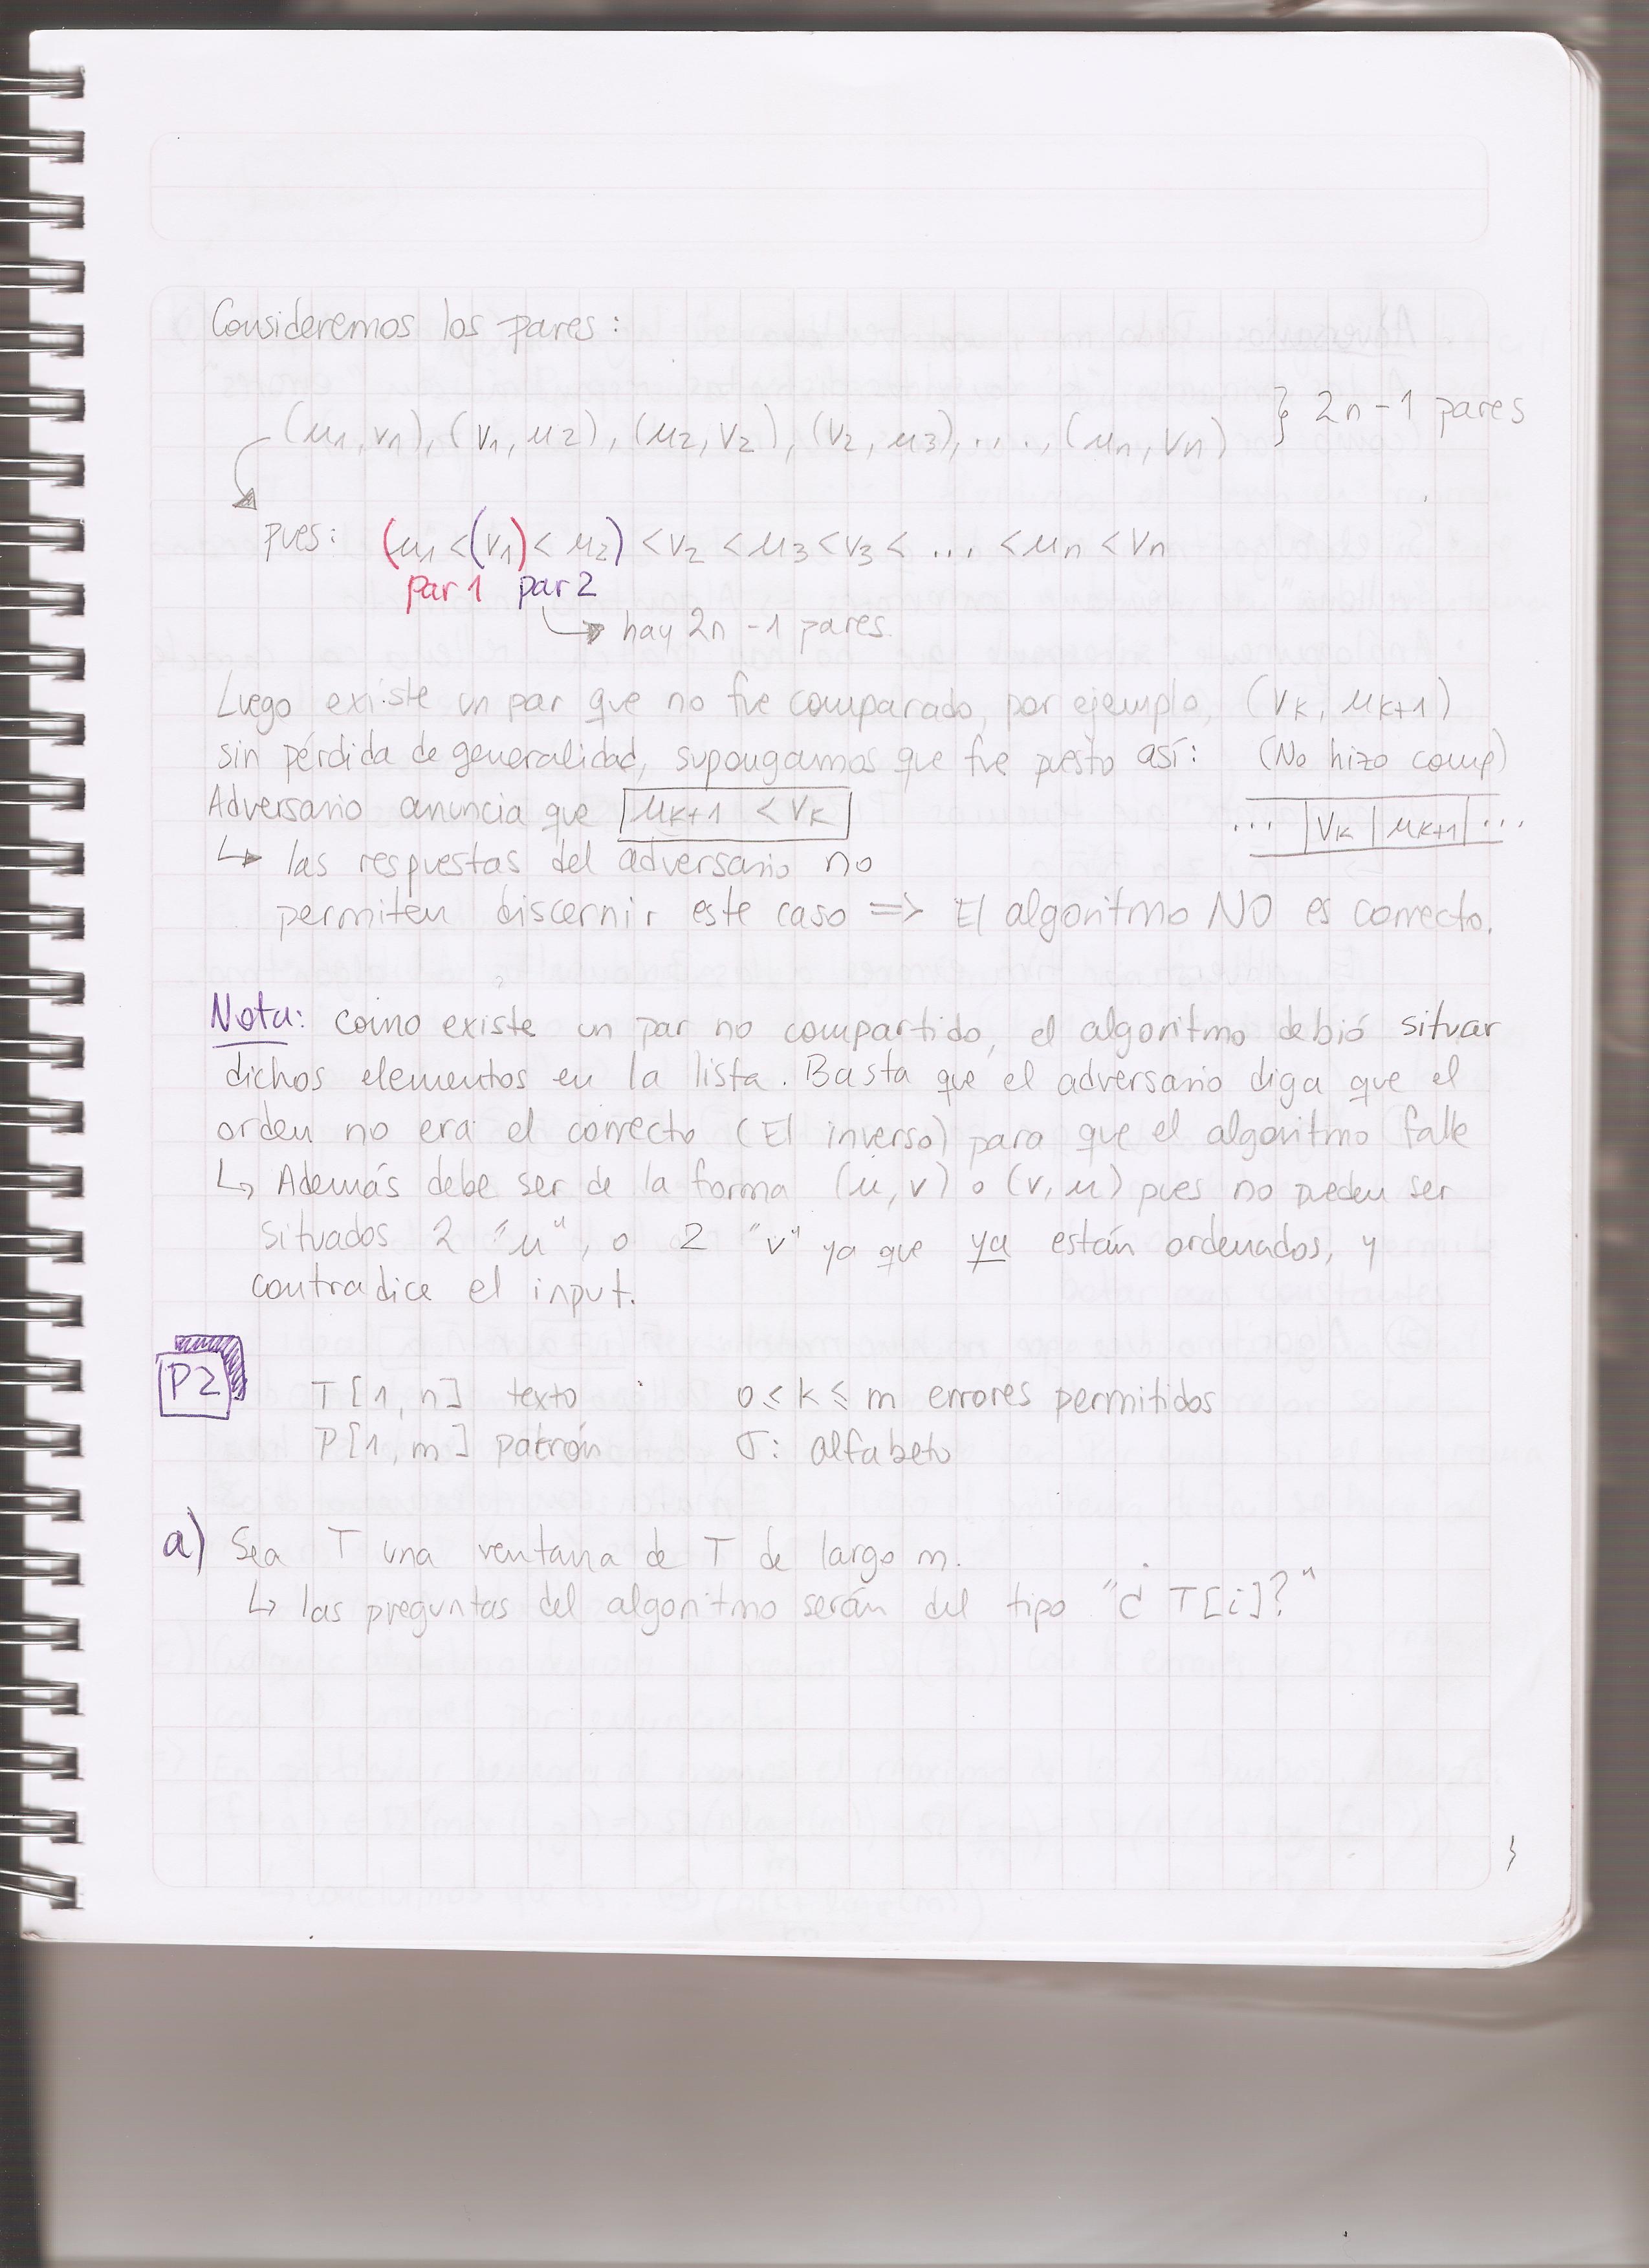 Consideremos los pares:
(u1, v1), (v1, u2), (u2, v2), (v2, u3), ..., (un, vn) } 2n-1 pares
pues: (u1 < (v1) < u2) < v2 < u3 < v3 < ... < un < vn
par 1 par 2
↳ hay 2n-1 pares
Luego existe un par que no fue comparado, por ejemplo, (vk, uk+1)
sin pérdida de generalidad, supongamos que fue puesto así: (No hizo comp)
Adversario anuncia que uk+1 < vk
... | vk | uk+1 | ...
↳ las respuestas del adversario no
permiten discernir este caso => El algoritmo NO es correcto.
Nota: como existe un par no compartido, el algoritmo debió situar
dichos elementos en la lista. Basta que el adversario diga que el
orden no era el correcto (El inverso) para que el algoritmo falle
↳ Además debe ser de la forma (u, v) o (v, u) pues no pueden ser
situados 2 "u", o 2 "v" ya que ya están ordenados, y
contradice el input.
P2
T[1, n] texto 0 ≤ k ≤ m errores permitidos
P[1, m] patrón σ: alfabeto
a) Sea T una ventana de T de largo m.
↳ las preguntas del algoritmo serán del tipo "¿ T[i]?"